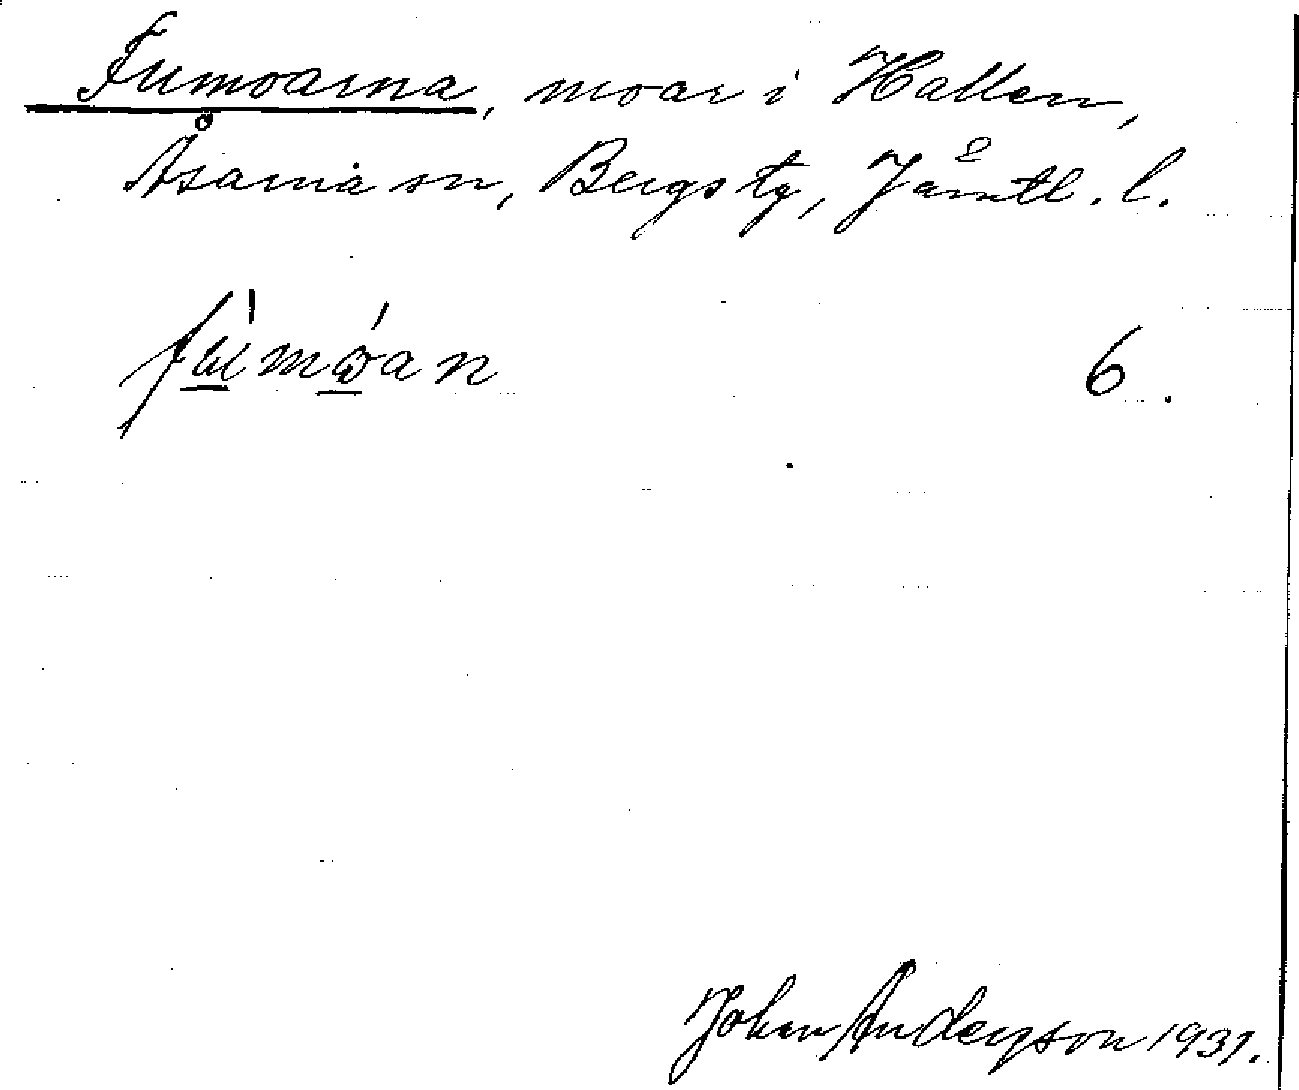 Fumoarna, moar i Hallen,
Åsarna sn, Bergs tg, Jämtl. l.
fúmóan 6.
Johan Anderson 1931.